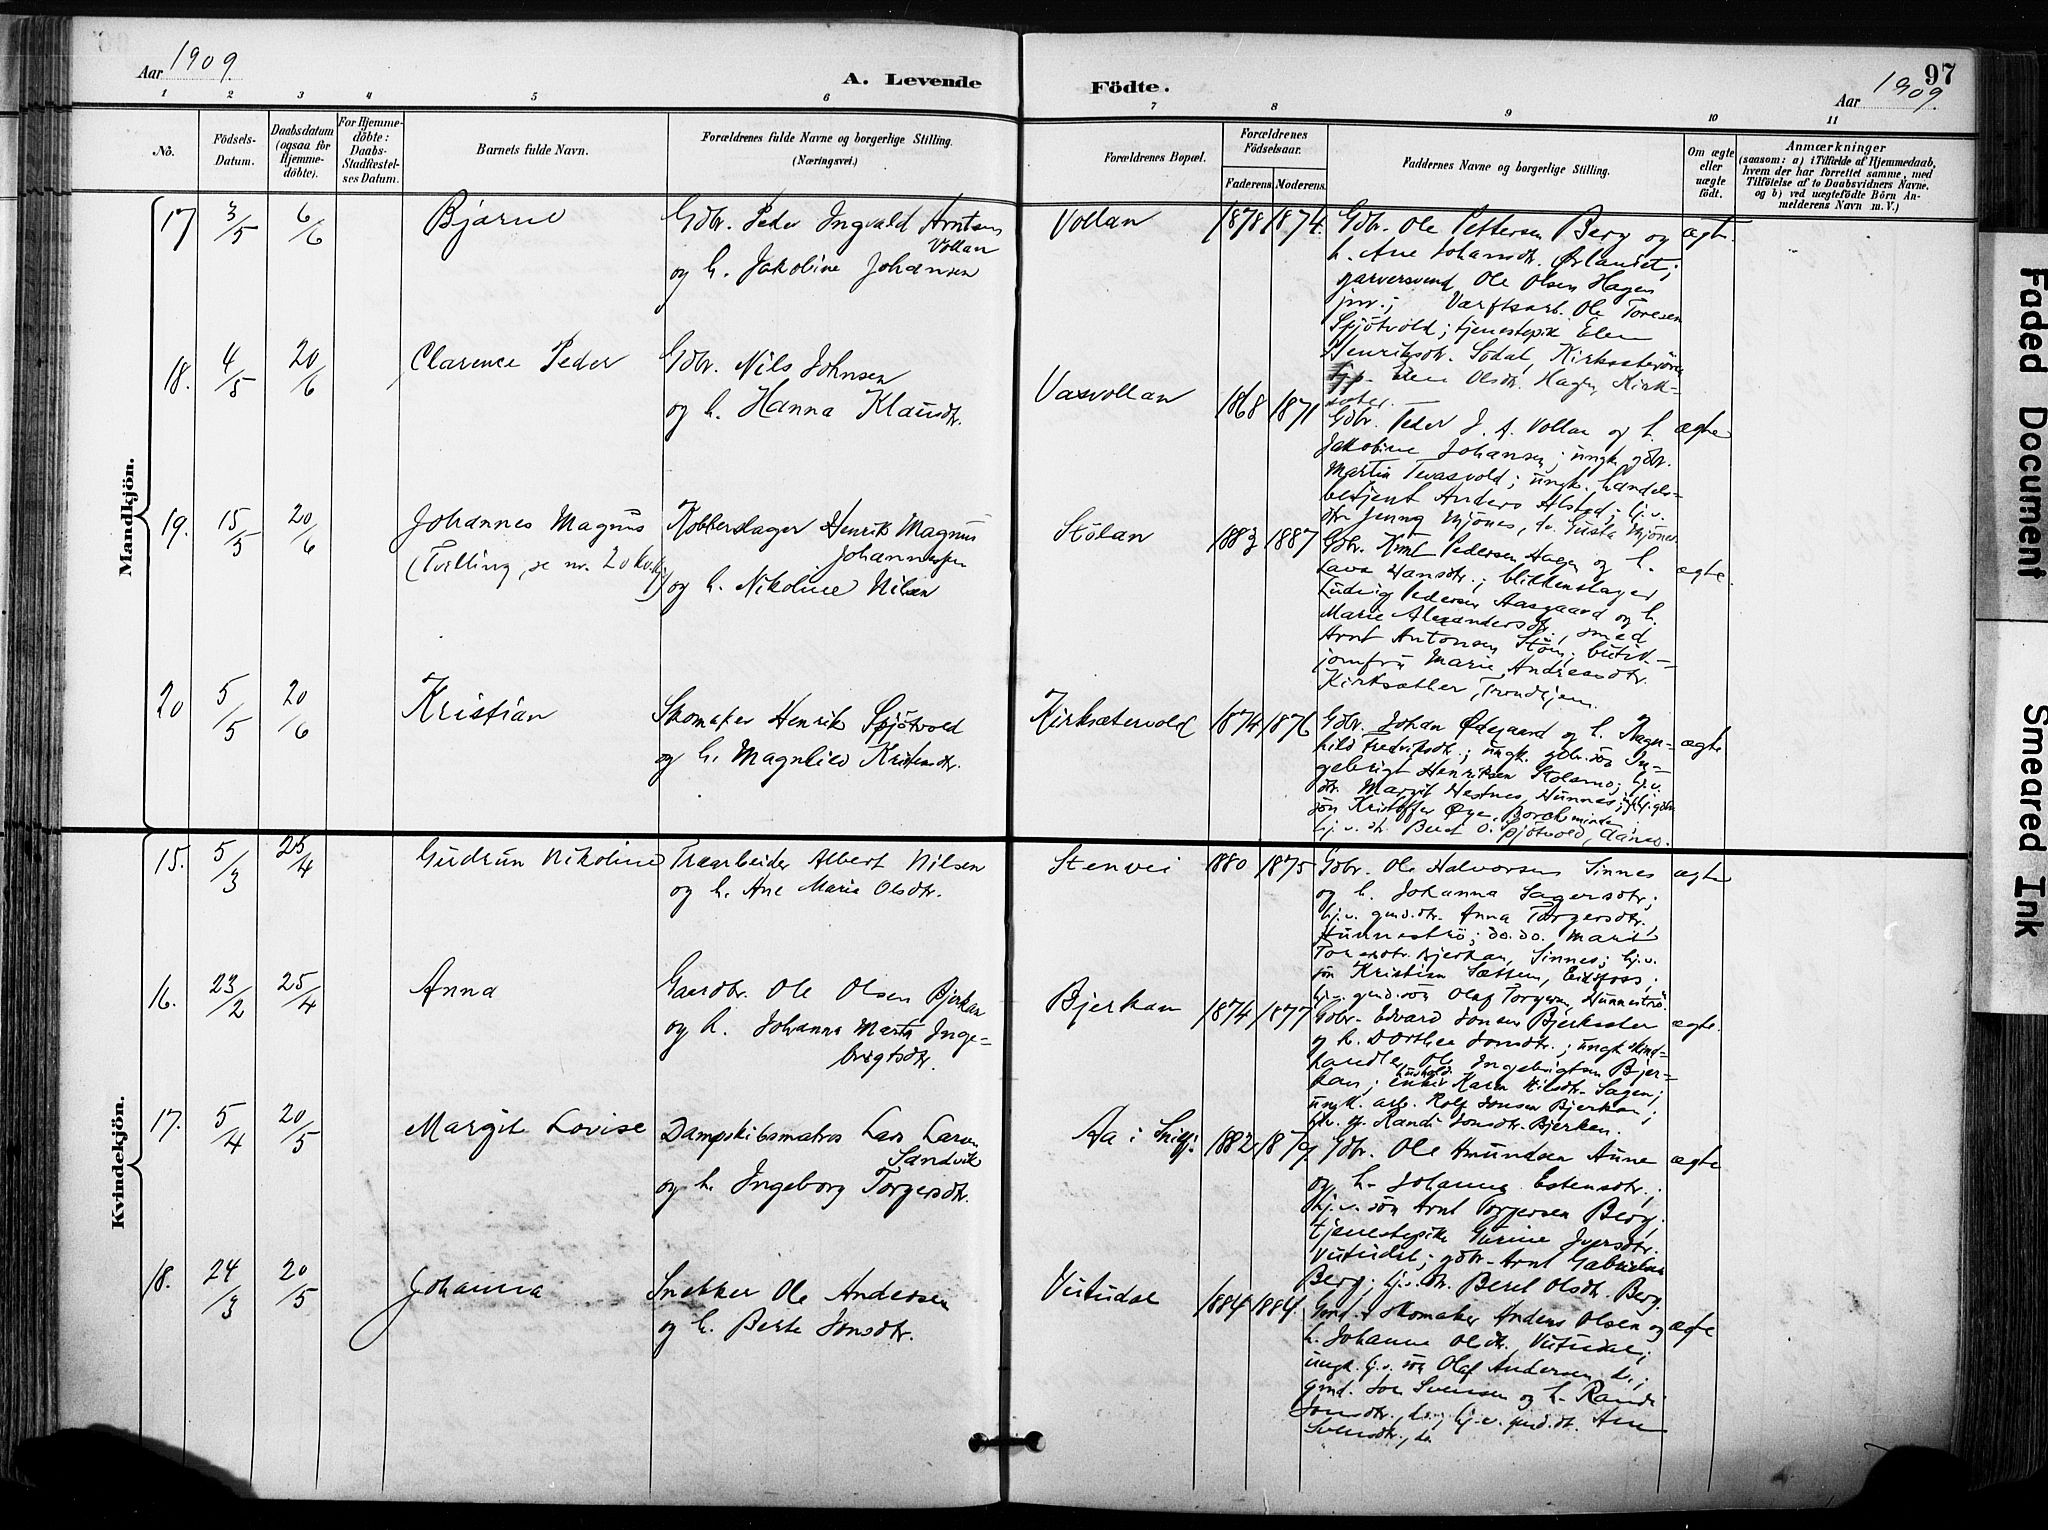 Aar 1909.
A. Levende
Födte.
97
Aar 1909.
1 2 3 4 5 6 7 8 9 10 11
No.
Födsels-
Datum.
Daabsdatum
(ogsaa for
Hjemme-
döbte).
For Hjemme-
döbte:
Daabs-
Stadfæstel-
ses Datum.
Barnets fulde Navn.
Forældrenes fulde Navne og borgerlige Stilling.
(Næringsvei.)
Forældrenes Bopæl.
Forældrenes
Födselsaar.
Faderens. Moderens.
Faddernes Navne og borgerlige Stilling.
Om ægte
eller
uægte
födt.
Anmærkninger
(saasom: a) i Tilfælde af Hjemmedaab,
hvem der har forrettet samme, med
Tilföielse af to Daabsvidners Navne.
og b) ved uægtefödte Börn An-
melderens Navn m. V.)
Mandkjön.
17 3/5 6/6 Bjarne
Gdbr. Peder Ingvald Arntsen
Vollan
og h. Jakobine Johansen
Vollan 1878 1874.
Gdbr. Ole Pettersen Berg og
h. Ane Johansdtr. Ørlandet;
garversvend Ole Olsen Hagen
jnr.; Værftsarb. Ole Toresen
Spjötvold; tjenestepik Elen
Henriksdtr. Södal, Kirksæterören
Elen Olsdtr. Hagen, Kirk-
sæter.
ægte.
18. 4/5 20/6 Clarence Peder
Gdbr. Nils Johnsen
og h. Hanna Klausdtr.
Vasvollan 1868 1871
Gdbr. Peder J. A. Vollan og h.
Jakobine Johansen; ungk. gdbr.
Martin Tevasvold; ungk. handels-
betjent Anders Alstad; hj.v.
dtr Jenny Mjönes, do. Gusta Mjönes.
ægte
19. 15/5 20/6 Johannes Magnus
(Tvilling, se nr. 20 kvkj)
Kobberslager Henrik Magnus
Johannesen
og h. Nikoline Nilsen
Stölan 1883 1887
Gdbr. Knut Pedersen Hagen og h.
Lava Hansdtr.; blikkenslager
Ludvig Pedersen Aasgaard og h.
Marie Alexandersdtr., smed
Arnt Antonsen Ström; butik-
jomfru Marie Andreasdtr.
Kirksæther, Trondhjem.
ægte.
20 5/5 20/6 Kristian
Skomaker Henrik Spjötvold
og h. Magnhild Kristensdtr.
Kirksætervold 1874 1876
Gdbr. Johan Ødegaard og h. Ragn-
hild Fredriksdtr.; ungk. gdbr.sön In-
gebrigt Henriksen Stolsmo; hj.v.
dtr. Margit Hestnes, Hunnes;
sön Kristoffer Øye,
hj.v. dtr. Beret O. Spjötvold,
ægte
Kvindekjön.
15. 5/3 25/4 Gudrun Nikoline
Træarbeider Albert Nilsen
og h. Ane Marie Olsdtr.
Stenvei 1880 1875
Gdbr. Ole Halvorsen Sinnes
og h. Johanna Sagersdtr;
hj.v. gmd.dtr. Anna Torgersdtr.
Hunneströ; do. do. Marit
Toresdtr. Bjerkan, Sinnes; hj.v.
sön Kristian Sættem, Eidsfoss;
hj.v. gmd.sön Olaf Torgersen, Hunneströ
ægte
16. 23/2 25/4 Anna
Gaardbr. Ole Olsen Bjerkan
og h. Johanna Marta Inge-
brigtsdtr.
Bjerkan 1874 1877
Gdbr. Edvard Jonsen Bjerksæter
og h. Dorthea Jonsdtr.; ungk. skind-
handler Ole Ingebrigtsen Bjer-
kan; enke Karen Nilsdtr. Sagen;
ungk. arb. Rolf Jonsen Bjerkan;
Randi Jonsdtr. Bjerkan.
ægte.
17. 5/4 20/5 Margit Lovise
Dampskibsmatros Lars Larsen
Sandvik
og h. Ingeborg Torgersdtr.
Aa i Snillfj. 1882 1879
Gdbr. Ole Amundsen Aune
og h. Johanna Estensdtr.;
hj.v. sön Arnt Torgersen Berg;
tjenestepik Gurine Iversdtr.
Vutudal; gdbr. Arnt Gabrielsen
Berg; hj.v. dtr. Beret Olsdtr. Berg.
ægte
18. 24/3 20/5 Johanna
Snekker Ole Andersen
og h. Berte Jonsdtr.
Vutudal 1884 1884.
Gmd. & skomaker Anders Olsen og
h. Johanna Olsdtr. Vutudal;
ungk. hj.v. sön Olaf Andersen do.;
gmd. Jon Svensen og h. Randi
Jonsdtr., do., hj.v. gmd.dt. Ane
Svensdtr., do.
ægte
Faded Document
Smeared Ink